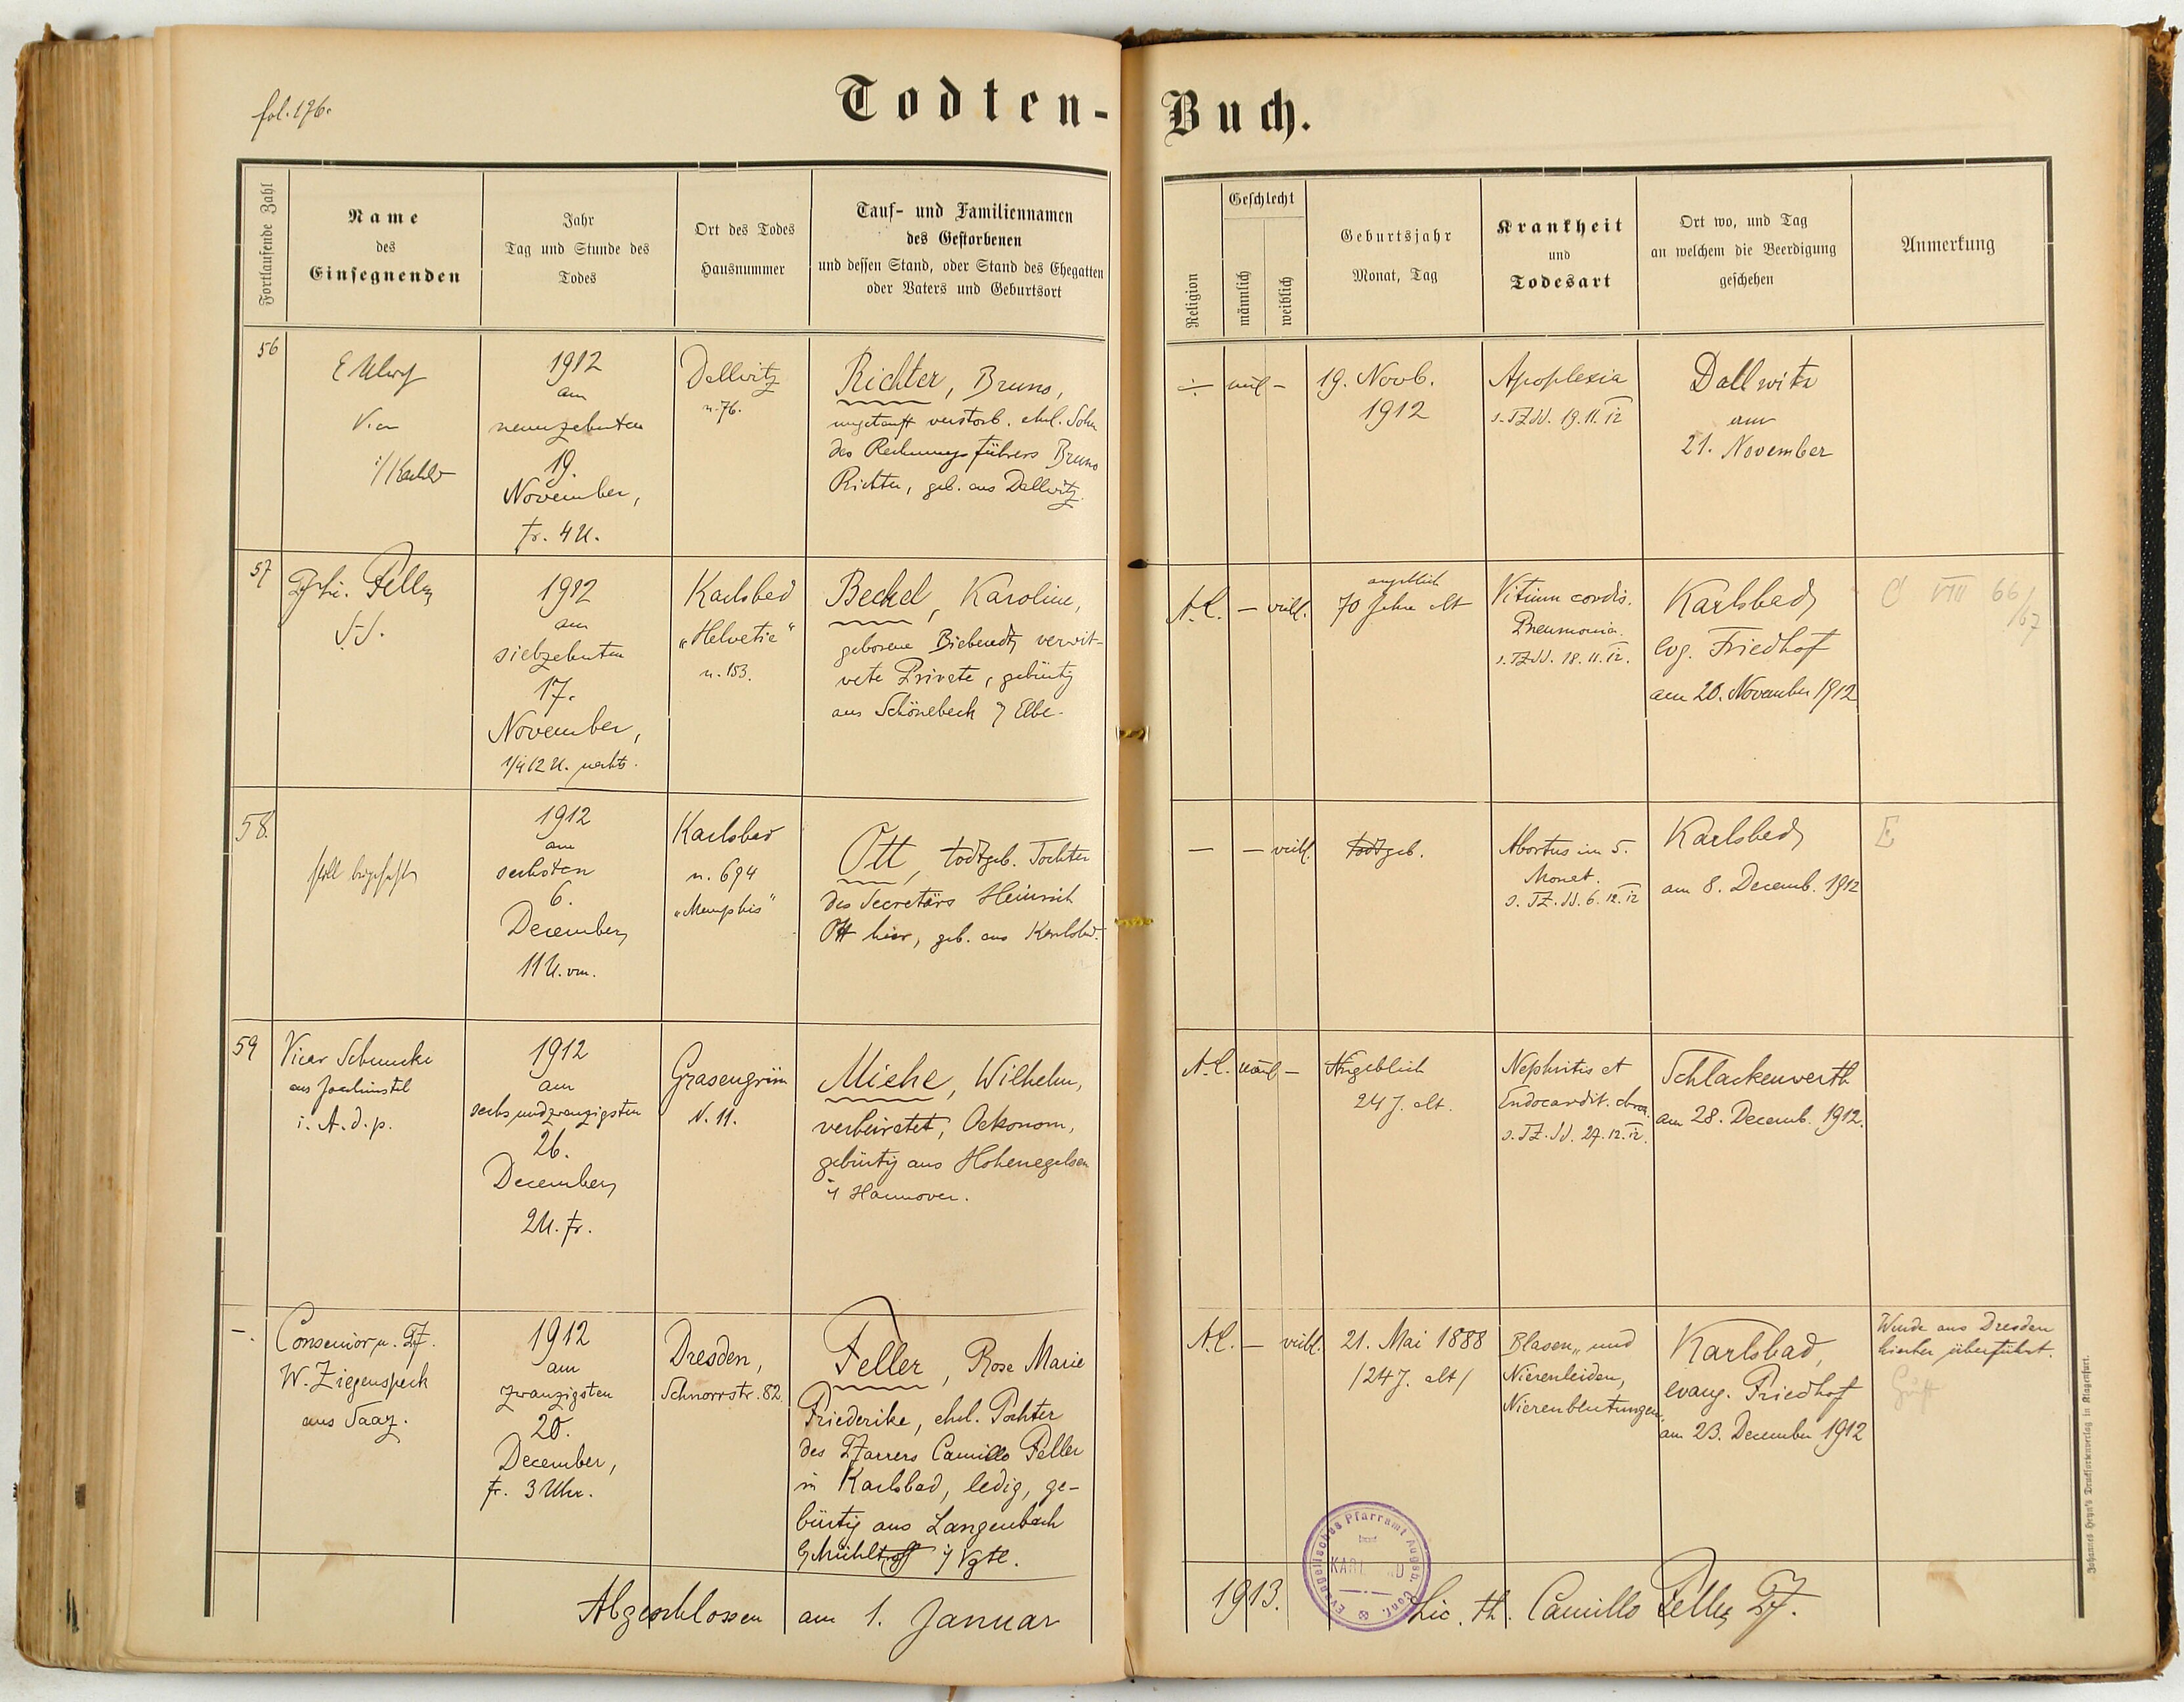 fol. 196.
Todten-Buch.
Fortlaufende Zahl
Name
des
Einsegnenden
Jahr
Tag und Stunde des
Todes
Ort des Todes
Hausnummer
Tauf- und Familiennamen
des Gestorbenen
und dessen Stand, oder Stand des Ehegatten
oder Vaters und Geburtsort
Religion
Geschlecht
männlich
weiblich
Geburtsjahr
Monat, Tag
Krankheit
und
Todesart
Ort wo, und Tag
an welchem die Beerdigung
geschehen
Anmerkung
56
1912
am
neunzehnten
19.
November,
fr. 4 U.
Dallwitz
n. 76.
Richter, Bruno,
ungetauft verstorb. ehel. Sohn
des Rechnungsführers Bruno
Richter, geb. aus Dallwitz.
÷
mnl
–
19. Novb.
1912
Apoplexia
19. 11. 12
Dallwitz
am
21. November
57
Feller
1912
am
siebzehnten
17.
November,
1/4 12 U. nachts.
Karlsbad
„Helvetia"
n. 153.
Beckel, Karoline,
geborene verwit-
wete Private, gebürtig
aus Schönebeck / Elbe.
A.C.
–
weibl.
angeblich
70 Jahre alt
Vitium cordis.
Pneumonia.
18. 11. 12.
Karlsbad
evg. Friedhof
am 20. November 1912
C VIII 66/67
58.
1912
am
sechsten
6.
December,
11 U. vm.
Karlsbad
n. 694
„Memphis"
Ott, todtgeb. Tochter
des Secretärs Heinrich
Ott hier, geb. aus Karlsbad.
–
–
weibl.
todtgeb.
Abortus im 5.
Monat.
s. TZ. 6. 12. 12
Karlsbad
am 8. Decemb. 1912
E
59
Vicar Schmucke
aus Joachimstal
i. A. d. p.
1912
am
sechsundzwanzigsten
26.
December,
2 U. fr.
Grasengrün
N. 11.
Miehe, Wilhelm,
verheiratet, Oekonom,
gebürtig aus Hohenegelsen
i/ Hannover.
A.C.
mänl
–
Angeblich
24 J. alt.
Nephritis et
Endocardit. chron.
s. TZ. 27. 12. 12.
Schlackenwerth
am 28. Decemb. 1912.
–.
Consenior u. Pf.
W. Ziegenspeck
aus Saaz.
1912
am
zwanzigsten
20.
December,
fr. 3 Uhr.
Dresden,
Schnorrstr. 82
Feller, Rose Marie
Friederike, ehel. Tochter
des Pfarrers Camillo Feller
in Karlsbad, ledig, ge-
bürtig aus Langenbach
b/ Mühltroff i/ Vgtl.
A.C.
–
weibl.
21. Mai 1888
/24 J. alt/
Blasen- und
Nierenleiden,
Nierenblutungen.
Karlsbad,
evang. Friedhof
am 23. December 1912
Wurde aus Dresden
hierher überführt.
Gruft
Abgeschlossen am 1. Januar 1913.
Lic. th. Camillo Feller Pf.
Evangelisches Pfarramt Augsb. Conf.
Johannes Heyn's Drucksortenverlag in Klagenfurt.